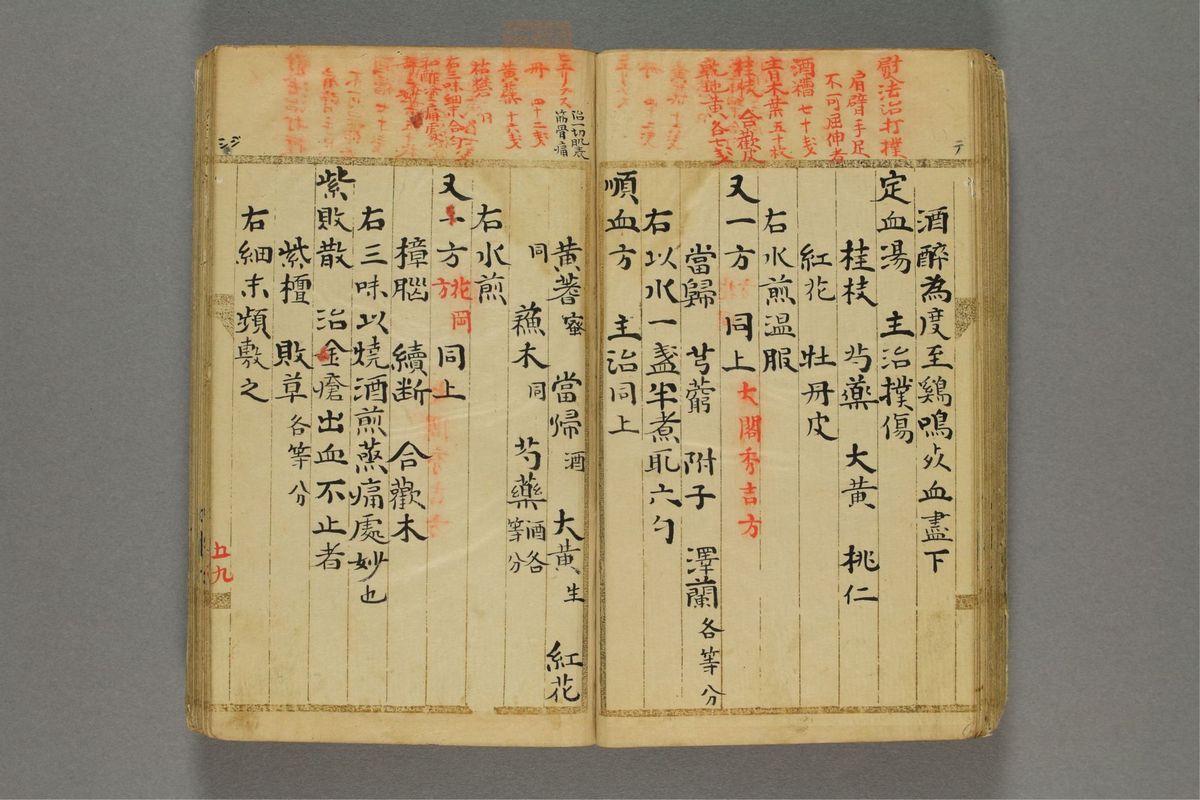 慰法治打撲
肩臂手足
不可屈伸者
酒糟 七十戔
青木葉 五十枚
桂枝 合歡皮
乾地黃各七戔
テ
酒醉為度至鷄鳴炊血盡下
定血湯 主治撲傷
桂枝 芍藥 大黃 桃仁
紅花 牡丹皮
右水煎温服
又一方 同上 大閤秀吉方
當歸 芎藭 附子 澤蘭各等分
右以水一盞半煮取六勺
順血方 主治同上
治一切肌表
筋骨痛
丹 四十二戔
黃蘗 十六戔
右三味細末合匀
和酢塗痛處
黃蓍蜜 當帰酒 大黃生 紅花
同 蘓木同 芍藥酒各等分
右水煎
又一方 花岡方 同上
樟腦 續断 合歡木
右三味以燒酒煎蒸痛處妙也
紫敗散 治金瘡出血不止者
紫檀 敗草各等分
右細末頻敷之
五九